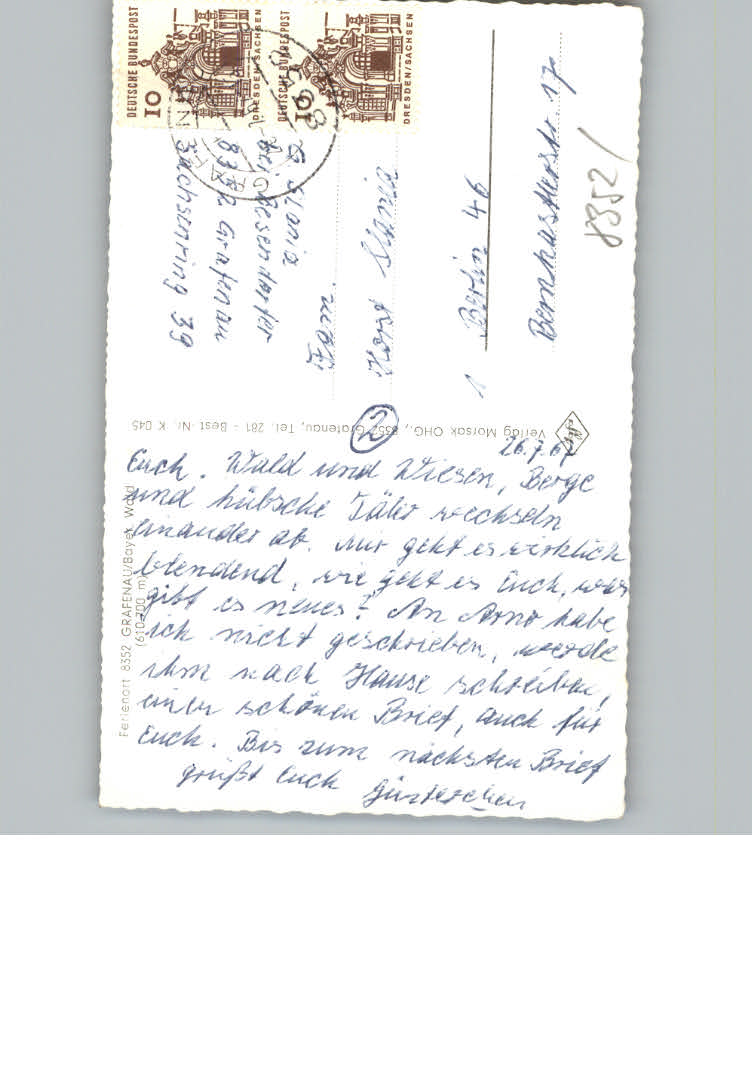 26.7.67
Euch. Wald und Wiesen, Berge
und hübsche Täler wechseln
einander ab. Mir geht es wirklich
blendend, wie geht es Euch, was
gibt es neues? An Arno habe
ich nicht geschrieben, werde
ihm nach Hause schreiben,
einen schönen Brief, auch für
Euch. Bis zum nächsten Brief
grüßt Euch
Ferienort 8352 GRAFENAU/Bayer. Wald
(610-700 m)
Verlag Morsak OHG., 8352 Grafenau, Tel. 281 - Best.-Nr. K 045
2
DEUTSCHE BUNDESPOST
10
DRESDEN/SACHSEN
DEUTSCHE BUNDESPOST
10
DRESDEN/SACHSEN
G. Slania
bei
8352 Grafenau
Sachsenring 39
Horst Slania
1 Berlin 46
17a
8352/